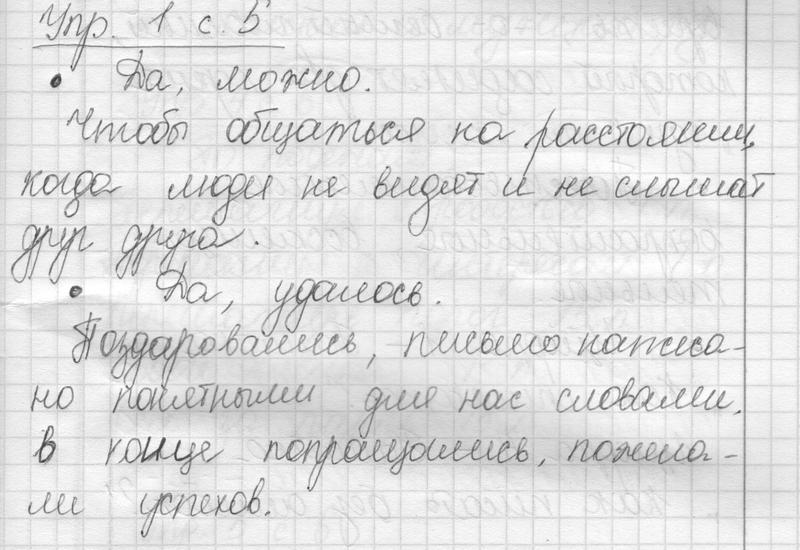 Упр. 1 с. 5
• Да, можно.
Чтобы общаться на расстоянии,
когда люди не видят и не слышат
друг друга.
• Да, удалось.
Поздаровались, письмо написа-
но понятными для нас словами.
В конце попращались, пожела-
ли успехов.